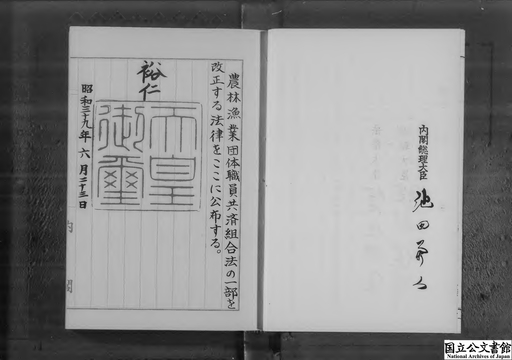 農林漁業団体職員共済組合法の一部を
改正する法律をここに公布する。
裕仁
天皇
御璽
昭和三十九年六月二十三日
内閣
内閣総理大臣
池田勇人
国立公文書館
National Archives of Japan